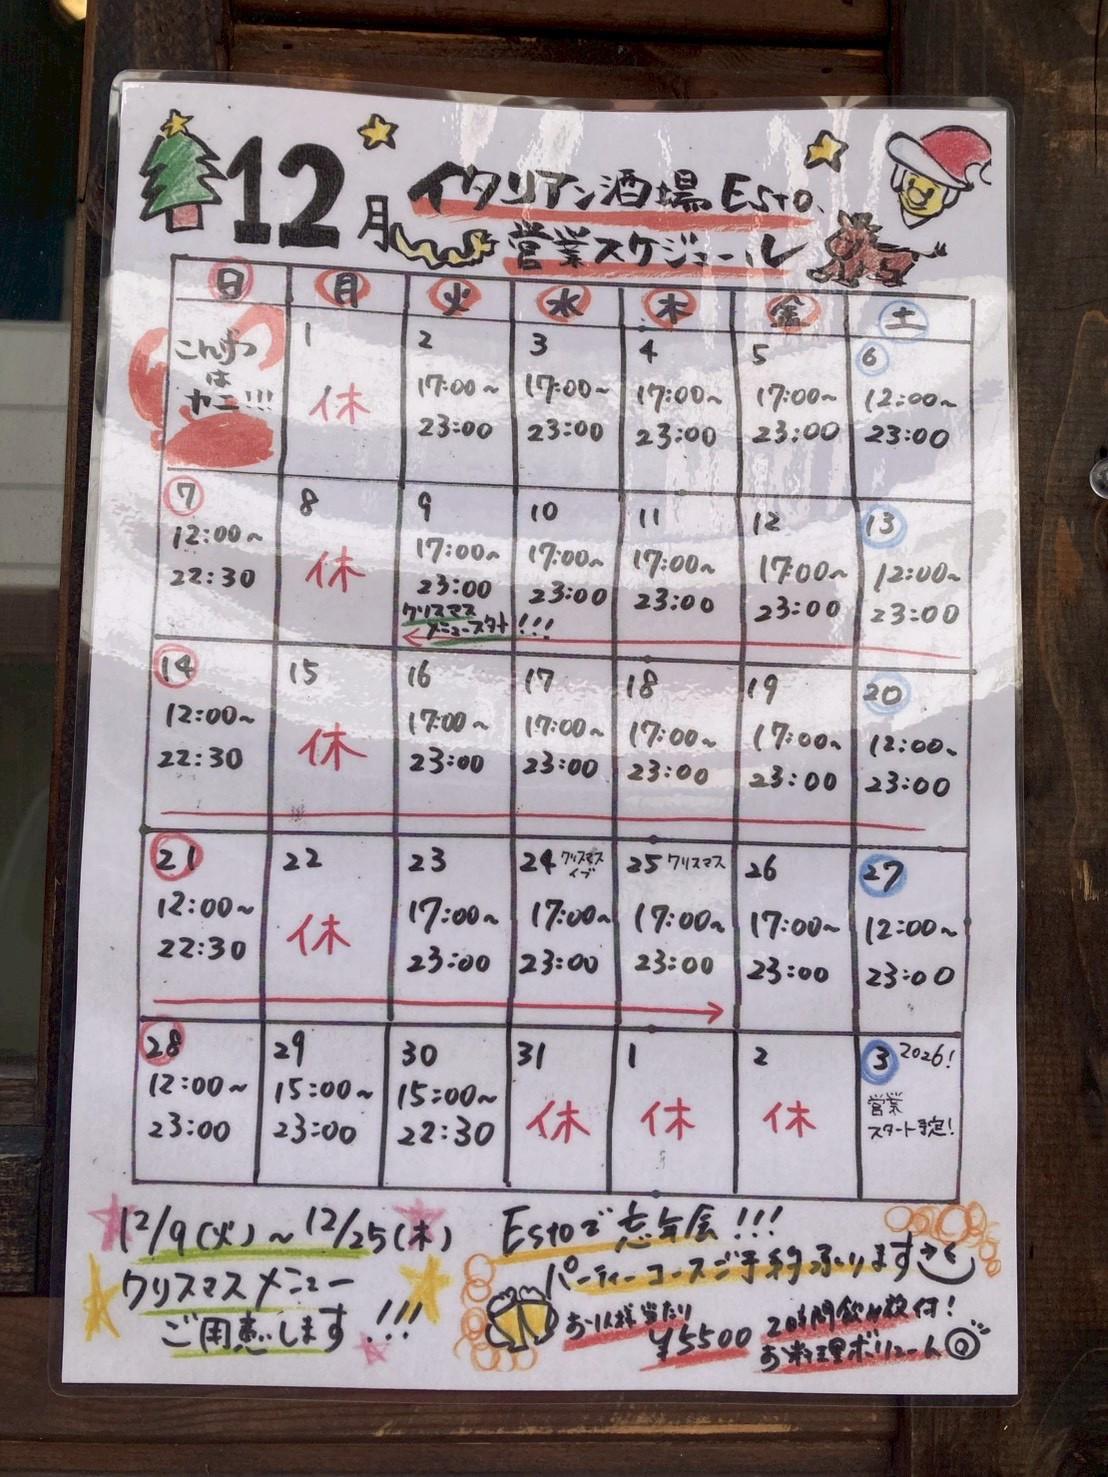 12月
イタリアン酒場Esto.
営業スケジュール
日 月 火 水 木 金 土
こんげつ
は
カニ!!!
1
休
2
17:00~
23:00
3
17:00~
23:00
4
17:00~
23:00
5
17:00~
23:00
6
12:00~
23:00
7
12:00~
22:30
8
休
9
17:00~
23:00
クリスマス
メニュースタート!!!
10
17:00~
23:00
11
17:00~
23:00
12
17:00~
23:00
13
12:00~
23:00
14
12:00~
22:30
15
休
16
17:00~
23:00
17
17:00~
23:00
18
17:00~
23:00
19
17:00~
23:00
20
12:00~
23:00
21
12:00~
22:30
22
休
23
17:00~
23:00
24 クリスマス
イブ
17:00~
23:00
25 クリスマス
17:00~
23:00
26
17:00~
23:00
27
12:00~
23:00
28
12:00~
23:00
29
15:00~
23:00
30
15:00~
22:30
31
休
1
休
2
休
3 2026!
営業
スタート予定!
12/9(火)~12/25(木)
クリスマスメニュー
ご用意します!!!
Estoで忘年会!!!
パーティーコースご予約承ります
お1人様当たり
¥5500
2時間飲み放付!
お料理ボリューム◎